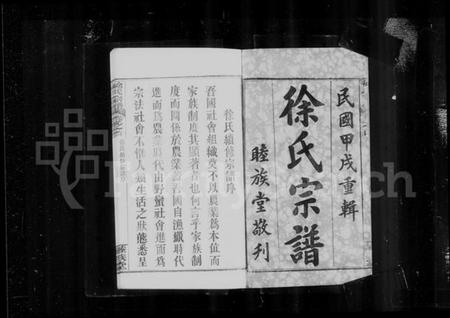 民國甲戌重輯
徐氏宗譜
睦族堂敬刊
徐氏續修宗譜序
吾國社會組織莫不以農業為本位而
家族制度其顯著者也何言乎家族制
度而關係於農業蓋吾國自漁獵時代
進而為農業時代由野蠻社會進而為
宗法社會不惟人類生活之狀態悉呈
睦族堂